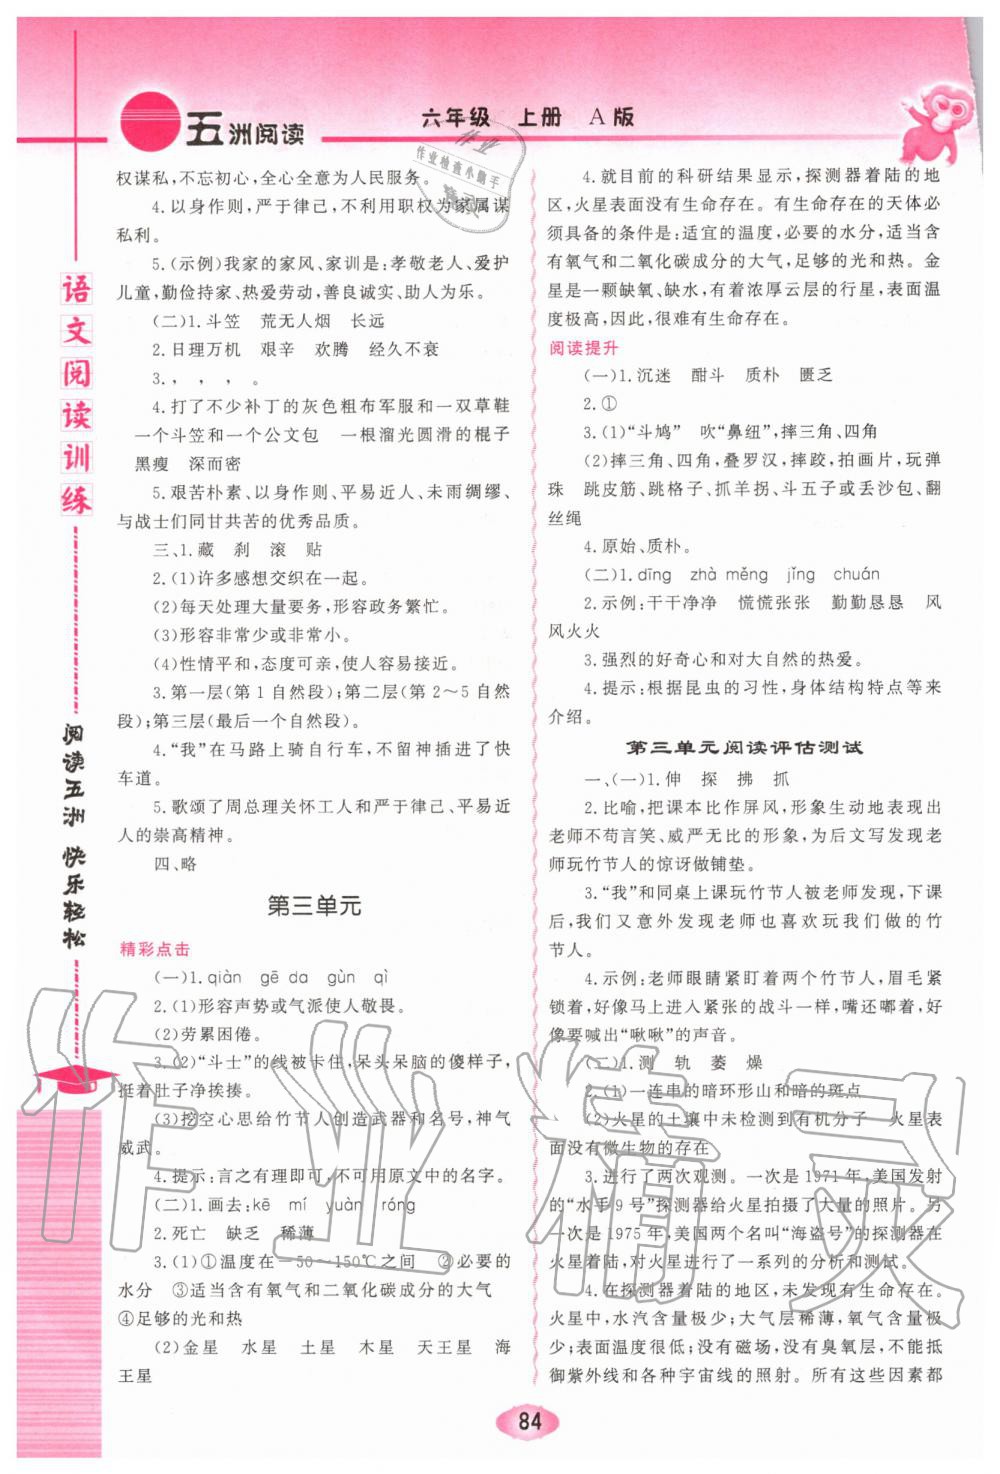 五洲阅读
六年级 上册 A版
作业
作业检查小助手
语文阅读训练
阅读五洲 快乐轻松
权谋私,不忘初心,全心全意为人民服务。
4.以身作则,严于律己,不利用职权为家属谋
私利。
5.(示例)我家的家风、家训是:孝敬老人、爱护
儿童,勤俭持家、热爱劳动,善良诚实、助人为乐。
(二)1.斗笠 荒无人烟 长远
2.日理万机 艰辛 欢腾 经久不衰
3., , , 。
4.打了不少补丁的灰色粗布军服和一双草鞋
一个斗笠和一个公文包 一根溜光圆滑的棍子
黑瘦 深而密
5.艰苦朴素、以身作则、平易近人、未雨绸缪、
与战士们同甘共苦的优秀品质。
三、1.藏 刹 滚 贴
2.(1)许多感想交织在一起。
(2)每天处理大量要务,形容政务繁忙。
(3)形容非常少或非常小。
(4)性情平和,态度可亲,使人容易接近。
3.第一层(第1自然段);第二层(第2～5自然
段);第三层(最后一个自然段)。
4.“我”在马路上骑自行车,不留神插进了快
车道。
5.歌颂了周总理关怀工人和严于律己、平易近
人的崇高精神。
四、略
第三单元
精彩点击
(一)1.qiàn gē da gùn qì
2.(1)形容声势或气派使人敬畏。
(2)劳累困倦。
3.(2)“斗士”的线被卡住,呆头呆脑的傻样子,
挺着肚子净挨揍。
(3)挖空心思给竹节人创造武器和名号,神气
威武。
4.提示:言之有理即可,不可用原文中的名字。
(二)1.画去:kē mí yuàn róng
2.死亡 缺乏 稀薄
3.(1)①温度在－50～150℃之间 ②必要的
水分 ③适当含有氧气和二氧化碳成分的大气
④足够的光和热
(2)金星 水星 土星 木星 天王星 海
王星
4.就目前的科研结果显示,探测器着陆的地
区,火星表面没有生命存在。有生命存在的天体必
须具备的条件是:适宜的温度,必要的水分,适当含
有氧气和二氧化碳成分的大气,足够的光和热。金
星是一颗缺氧、缺水,有着浓厚云层的行星,表面温
度极高,因此,很难有生命存在。
阅读提升
(一)1.沉迷 酣斗 质朴 匮乏
2.①
3.(1)“斗鸠” 吹“鼻纽”,摔三角、四角
(2)摔三角、四角,叠罗汉,摔跤,拍画片,玩弹
珠 跳皮筋、跳格子、抓羊拐、斗五子或丢沙包、翻
丝绳
4.原始、质朴。
(二)1.dīng zhà měng jǐng chuán
2.示例:干干净净 慌慌张张 勤勤恳恳 风
风火火
3.强烈的好奇心和对大自然的热爱。
4.提示:根据昆虫的习性,身体结构特点等来
介绍。
第三单元阅读评估测试
一、(一)1.伸 探 拂 抓
2.比喻,把课本比作屏风,形象生动地表现出
老师不苟言笑、威严无比的形象,为后文写发现老
师玩竹节人的惊讶做铺垫。
3.“我”和同桌上课玩竹节人被老师发现,下课
后,我们又意外发现老师也喜欢玩我们做的竹
节人。
4.示例:老师眼睛紧盯着两个竹节人,眉毛紧
锁着,好像马上进入紧张的战斗一样,嘴还嘟着,好
像要喊出“啾啾”的声音。
(二)1.测 轨 萎 燥
2.(1)一连串的暗环形山和暗的斑点
(2)火星的土壤中未检测到有机分子 火星表
面没有微生物的存在
3.进行了两次观测。一次是1971年,美国发射
的“水手9号”探测器给火星拍摄了大量的照片。另
一次是1975年,美国两个名叫“海盗号”的探测器在
火星着陆,对火星进行了一系列的分析和测试。
4.在探测器着陆的地区,未发现有生命存在。
火星中,水汽含量极少;大气层稀薄,氧气含量极少;
表面温度很低;没有磁场,没有臭氧层,不能抵
御紫外线和各种宇宙线的照射。所有这些因素都
84
作业精灵